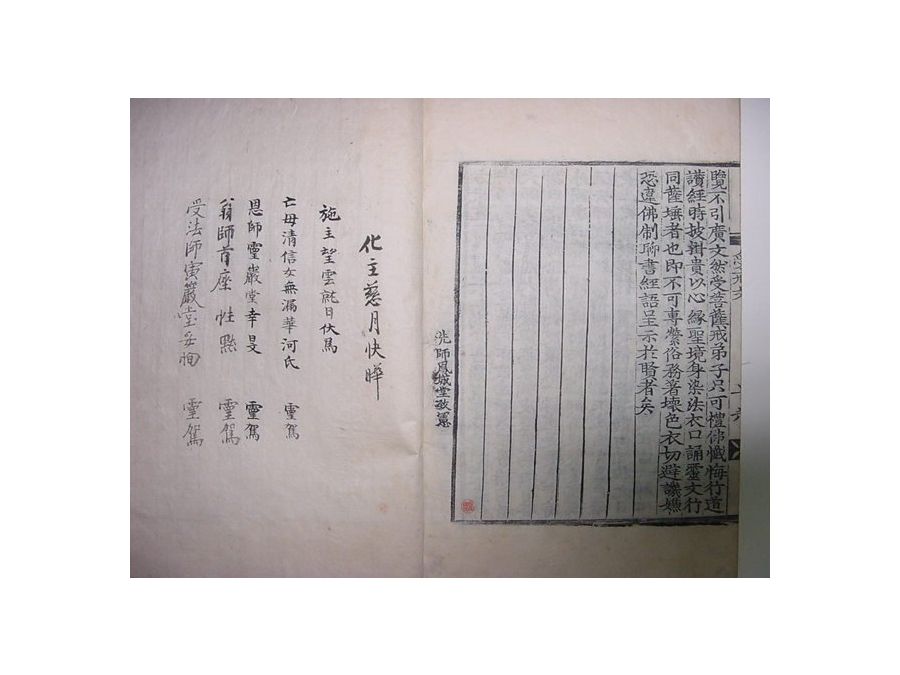 覽不引廣文然受菩薩戒弟子只可禮佛懺悔行道
讚經時披褂貴以心緣聖境身染法衣口誦靈文行
同薩埵者也即不可專縈俗務著壞色衣切避譏嫌
恐違佛制聊書經語呈示於賢者矣
先師鳳城堂致蕙
化主慈月快曄
施主望雲就日伏爲
亡母清信女無漏華河氏 靈駕
恩師靈巖堂幸旻 靈駕
翁師首座性點 靈駕
受法師寅巖堂妥洵 靈駕